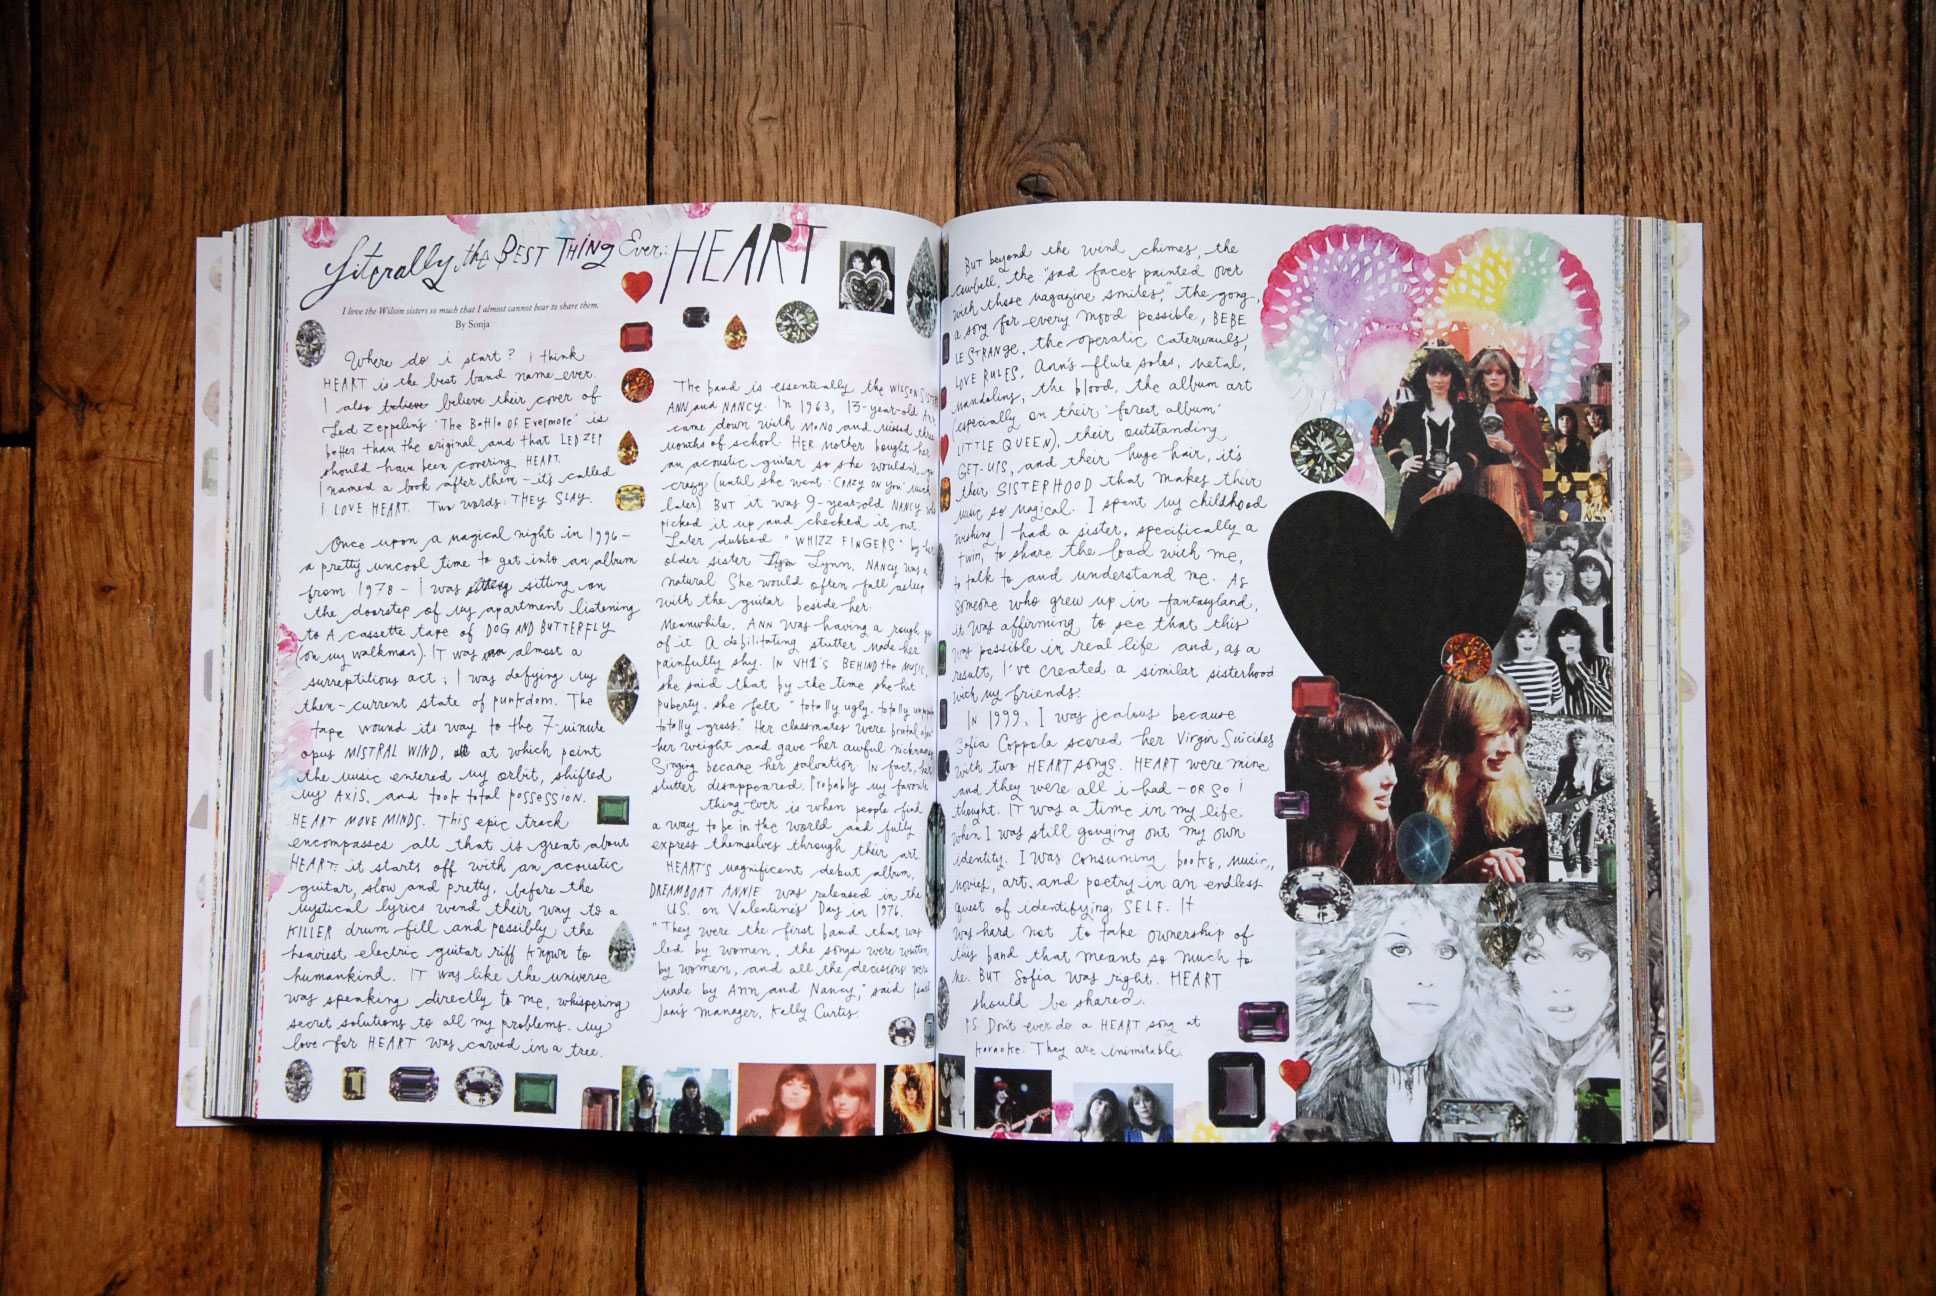 Literally the BEST THING Ever: HEART
I love the Wilson sisters so much that I almost cannot bear to share them.
By Sonja
Where do i start? i think
HEART is the best band name ever.
I also believe believe their cover of
Led Zeppelin's 'The Battle of Evermore' is
better than the original and that LED ZEP
should have been covering HEART.
I named a book after them - it's called
I LOVE HEART. Two words: THEY SLAY.
Once upon a magical night in 1996-
a pretty uncool time to get into an album
from 1978 - I was sitting on
the doorstep of my apartment listening
to A cassette tape of DOG AND BUTTERFLY
(on my walkman). IT was almost a
surreptitious act; I was defying my
then-current state of punkdom. The
tape wound its way to the 7-minute
opus MISTRAL WIND, at which point
the music entered my orbit, shifted
my AXIS, and took total possession.
HEART MOVE MINDS. This epic track
encompasses all that is great about
HEART: it starts off with an acoustic
guitar, slow and pretty, before the
mystical lyrics wend their way to a
KILLER drum fill and possibly the
heaviest electric guitar riff known to
humankind. IT was like the universe
was speaking directly to me, whispering
secret solutions to all my problems. My
love for HEART was carved in a tree.
The band is essentially the WILSON
ANN and NANCY. In 1963, 13-year-old
came down with MONO and missed three
months of school. HER mother bought her
an acoustic guitar so she wouldn't go
crazy (until she went 'CRAZY ON YOU' much
later) BUT it was 9-year-old NANCY who
picked it up and checked it out.
Later dubbed "WHIZZ FINGERS" by her
older sister Lynn, NANCY was a
natural She would often fall asleep
with the guitar beside her.
Meanwhile, ANN was having a rough go
of it A debilitating stutter made her
painfully shy. IN VH1's BEHIND the MUSIC,
she said that by the time she hit
puberty, she felt "totally ugly, totally
totally gross." Her classmates were brutal about
her weight and gave her awful nicknames
Singing became her salvation IN fact, her
stutter disappeared. Probably my favorite
thing ever is when people find
a way to be in the world and fully
express themselves through their art.
HEART'S magnificent debut album,
DREAMBOAT ANNIE was released in the
U.S. on Valentine's Day in 1976.
"They were the first band that was
led by women, the songs were written
by women, and all the decisions were
made by Ann and Nancy," said
manager, Kelly Curtis.
BUT beyond the wind chimes, the
cowbell, the "sad faces painted over
with those magazine smiles," the gong,
a song for every mood possible, BEBE
LE STRANGE, the operatic caterwauls,
LOVE RULES, Ann's flute solos, metal,
mandolins, the blood, the album art
(especially on their 'forest album'
LITTLE QUEEN), their outstanding
GET-UPS, and their huge hair, it's
their SISTERHOOD that makes their
music so magical. I spent my childhood
wishing I had a sister, specifically a
twin, to share the load with me,
to talk to and understand me. As
someone who grew up in fantasyland,
it was affirming to see that this
was possible in real life and, as a
result, I've created a similar sisterhood
with my friends.
IN 1999, I was jealous because
Sofia Coppola scored her Virgin Suicides
with two HEART songs. HEART were mine
and they were all i had - OR SO I
thought. IT was a time in my life
when I was still gouging out my own
identity. I was consuming books, music,
movies, art, and poetry in an endless
quest of identifying SELF. It
was hard not to take ownership of
this band that meant so much to
me. BUT Sofia was right. HEART
should be shared.
PS Don't ever do a HEART song at
karaoke. They are inimitable.